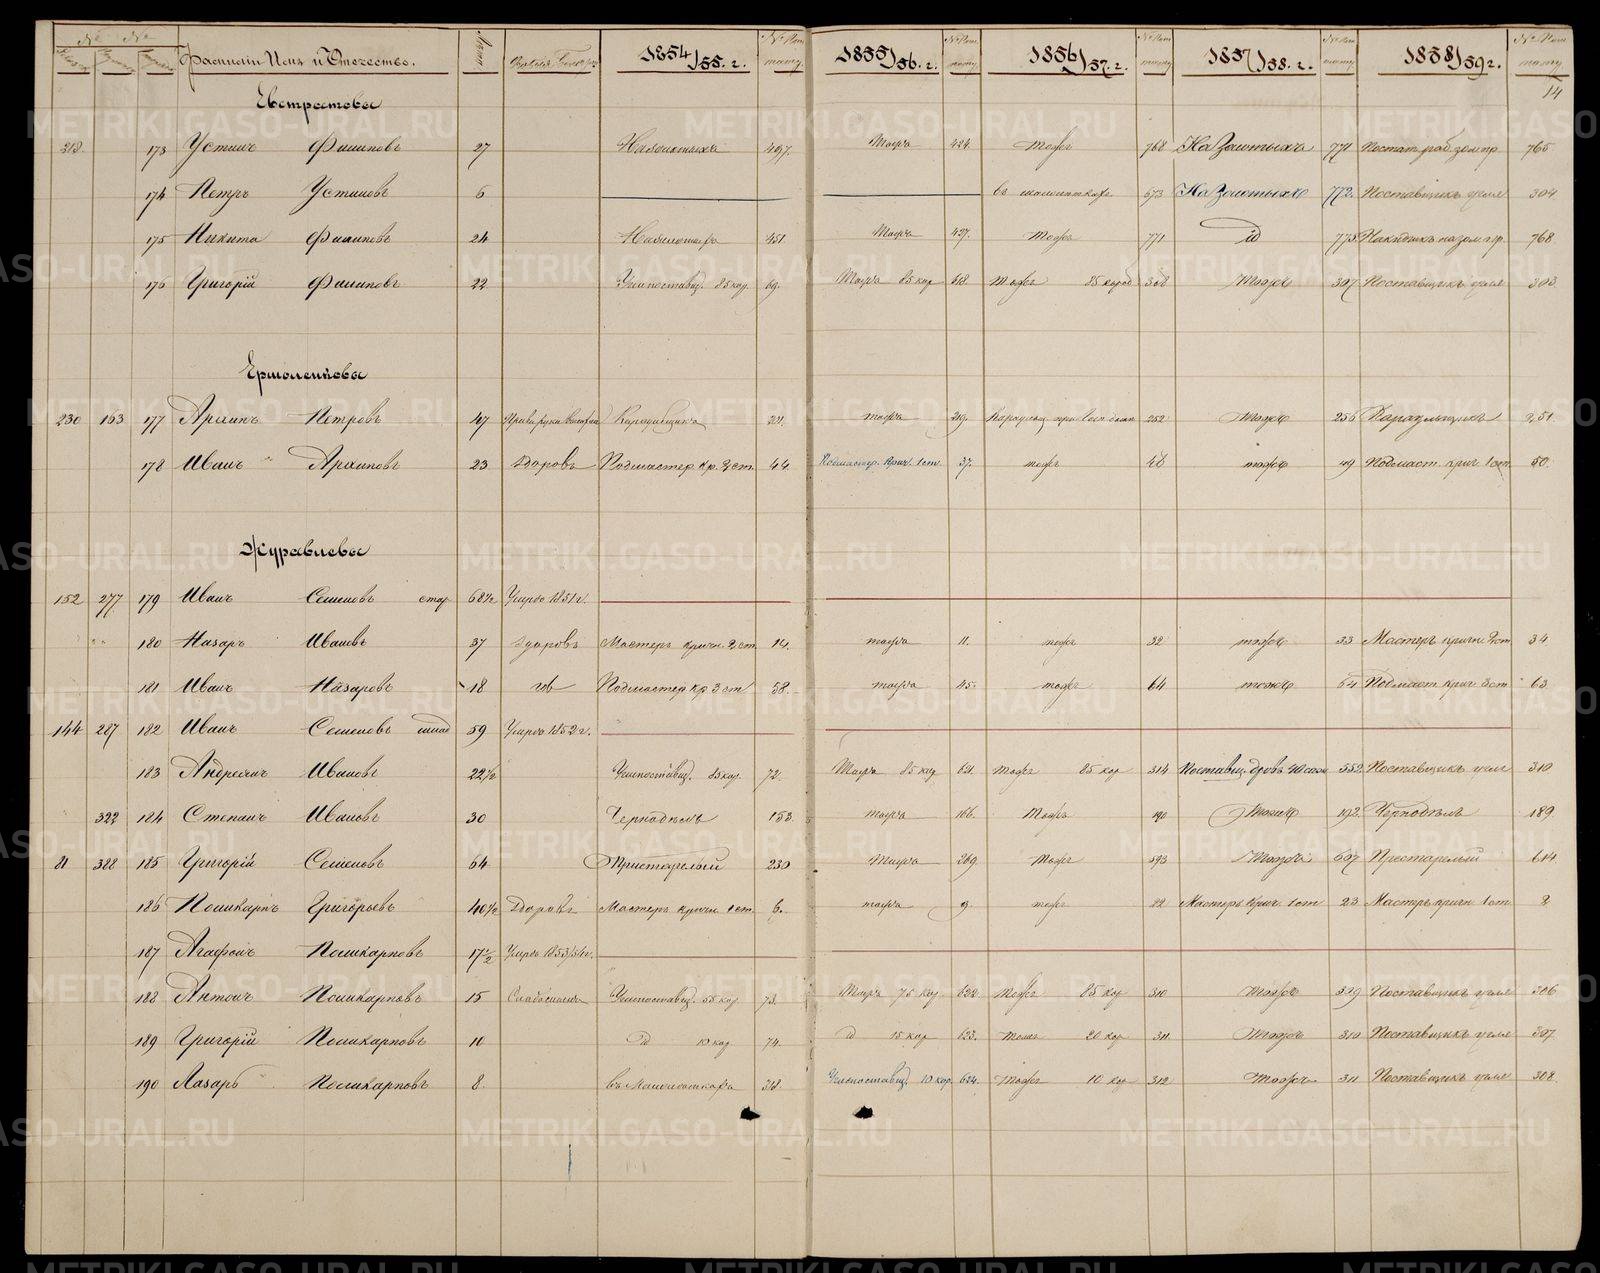 № № Фамилiи Имя и Отечество. Лета 1854/55. г. № 1855/56. г. № 1856/57. г. № 1837/38. г. № 1838/39 г. №
14
Евстратовы
213. 173 Устинъ Филиповъ 27 497. Тожъ 424. Тожъ 768 На Золотыхъ 771 765
174 Петръ Устиновъ 6 673 На Золотыхъ 772. Поставщикъ угля 304
175 Никита Филиповъ 24 451. Тожъ 427. Тожъ 771 id 773 768
176 Григорiй Филиповъ 22 Углепоставщ. 85 кор. 69. Тожъ 85 кор 618. Тожъ 85 короб 308 Тожъ 307 Поставщикъ угля 303
Ермолейковы
230 163 177 Архипъ Петровъ 47 Караульщикъ 211. тожъ 219. 252 тожъ 256 Караульщикъ 251.
178 Иванъ Архиповъ 23 Здоровъ Подмастер. кр. 2 ст. 44. Подмастер. крич. 1 ст. 37. тожъ 48 тожъ 49 Подмаст. крич. 1 ст. 50.
Журавлевы
152 277 179 Иванъ Семеновъ стар 68½ Умеръ 1851 г.
180 Назаръ Ивановъ 37 здоровъ Мастеръ кричн. 2 ст. 14. тожъ 11. тожъ 32 тожъ 33 Мастеръ кричн. 2 ст 34
181 Иванъ Назаровъ 18 Подмастер кр 3 ст 58. тожъ 45. тожъ 64 тожъ 64 Подмаст. крич. 3 ст 63
144 287 182 Иванъ Семеновъ млад 59 Умеръ 1852 г.
183 Андреянъ Ивановъ 22½ Углепоставщ. 85 кор. 72. Тожъ 85 кор 621. Тожъ 85 кор 314 Поставщ. дровъ 40 саж 552 Поставщикъ угля 310
322 184 Степанъ Ивановъ 30 Чернодѣлъ 153. тожъ 166. Тожъ 190 Тожъ 192. Чернодѣлъ 189
81 388 185 Григорiй Семеновъ 64 Пристарелый 230 Тожъ 269. Тожъ 593 Тожъ 607 Престарелый 614.
186 Поликарпъ Григорьевъ 40½ Здоровъ Мастеръ кричн. 1 ст. 6. тожъ 9 тожъ 22 Мастеръ крич. 1 ст 23 Мастеръ кричн 1 ст 8
187 Агафонъ Поликарповъ 17½ Умеръ 1853/54 г.
188 Антонъ Поликарповъ 15 Углепоставщ. 55 кор 73. Тожъ 75 кор. 622. Тожъ 85 кор 310 тожъ 309 Поставщикъ угля 306
189 Григорiй Поликарповъ 10 id 10 кор 74. id 15 кор 623. Тожъ 20 кор 311. Тожъ 310 Поставщикъ угля 307
190 Лазарь Поликарповъ 8. 318. Углепоставщ. 10 кор. 624. Тожъ 10 кор 312 Тожъ 311 Поставщикъ угля 308.
METRIKI.GASO-URAL.RU